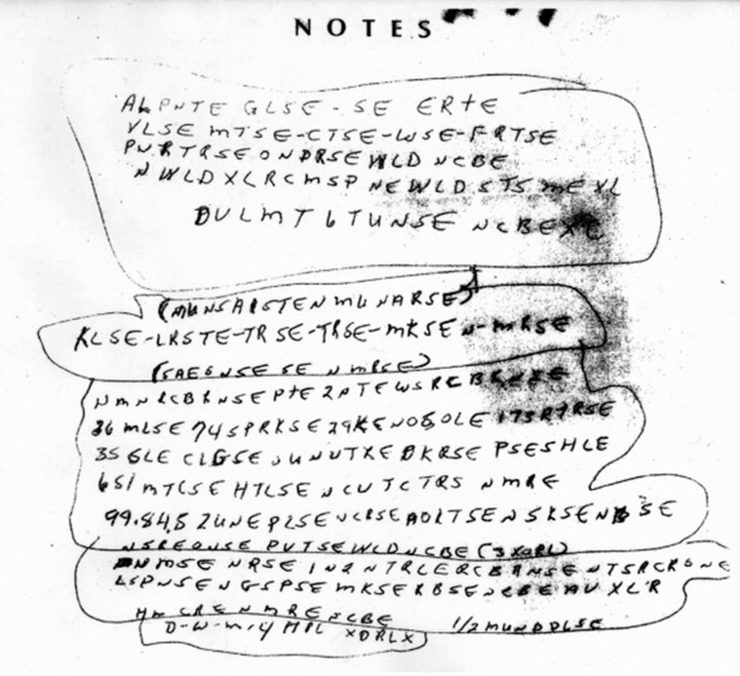 NOTES
ALPNTE GLSE-SE ERTE
VLSE MTSE-CTSE-WSE-FRTSE
PNRTRSEONDRSEWLD NCBE
NWLDXLRCMSP NEWLDSTS MEXL
DULMT6TUNSE NCBEXC
(MUNSAISTENMUNARSE)
KLSE-LRSTE-TRSE-TRSE-MKSEN-MRSE
(SAE6NSESENMRSE)
NMNRCBRNSEPTE2PTEWSRCBRNSE
36MLSE74SPRKSE29KENOSOLE173RTRSE
35GLE CLGSE UNUTXE DKRSE PSESHLE
651MTCSE HTLSE NCUTCTRS NMRE
99.84.52UNEPLSE NCRSEAOLTSENSKSENBSE
NSREONSE PVTSEWLDNCBE (3XORL)
DNMSE NRSE IN2NTRLERCBRNSENTSRCRONE
LSPNSENGSPSE MKSERBSENCBEAVXLR
HMCRENMRENCBE 1/2MUNDDLSE
D-W-M-Y MPL XDRLX